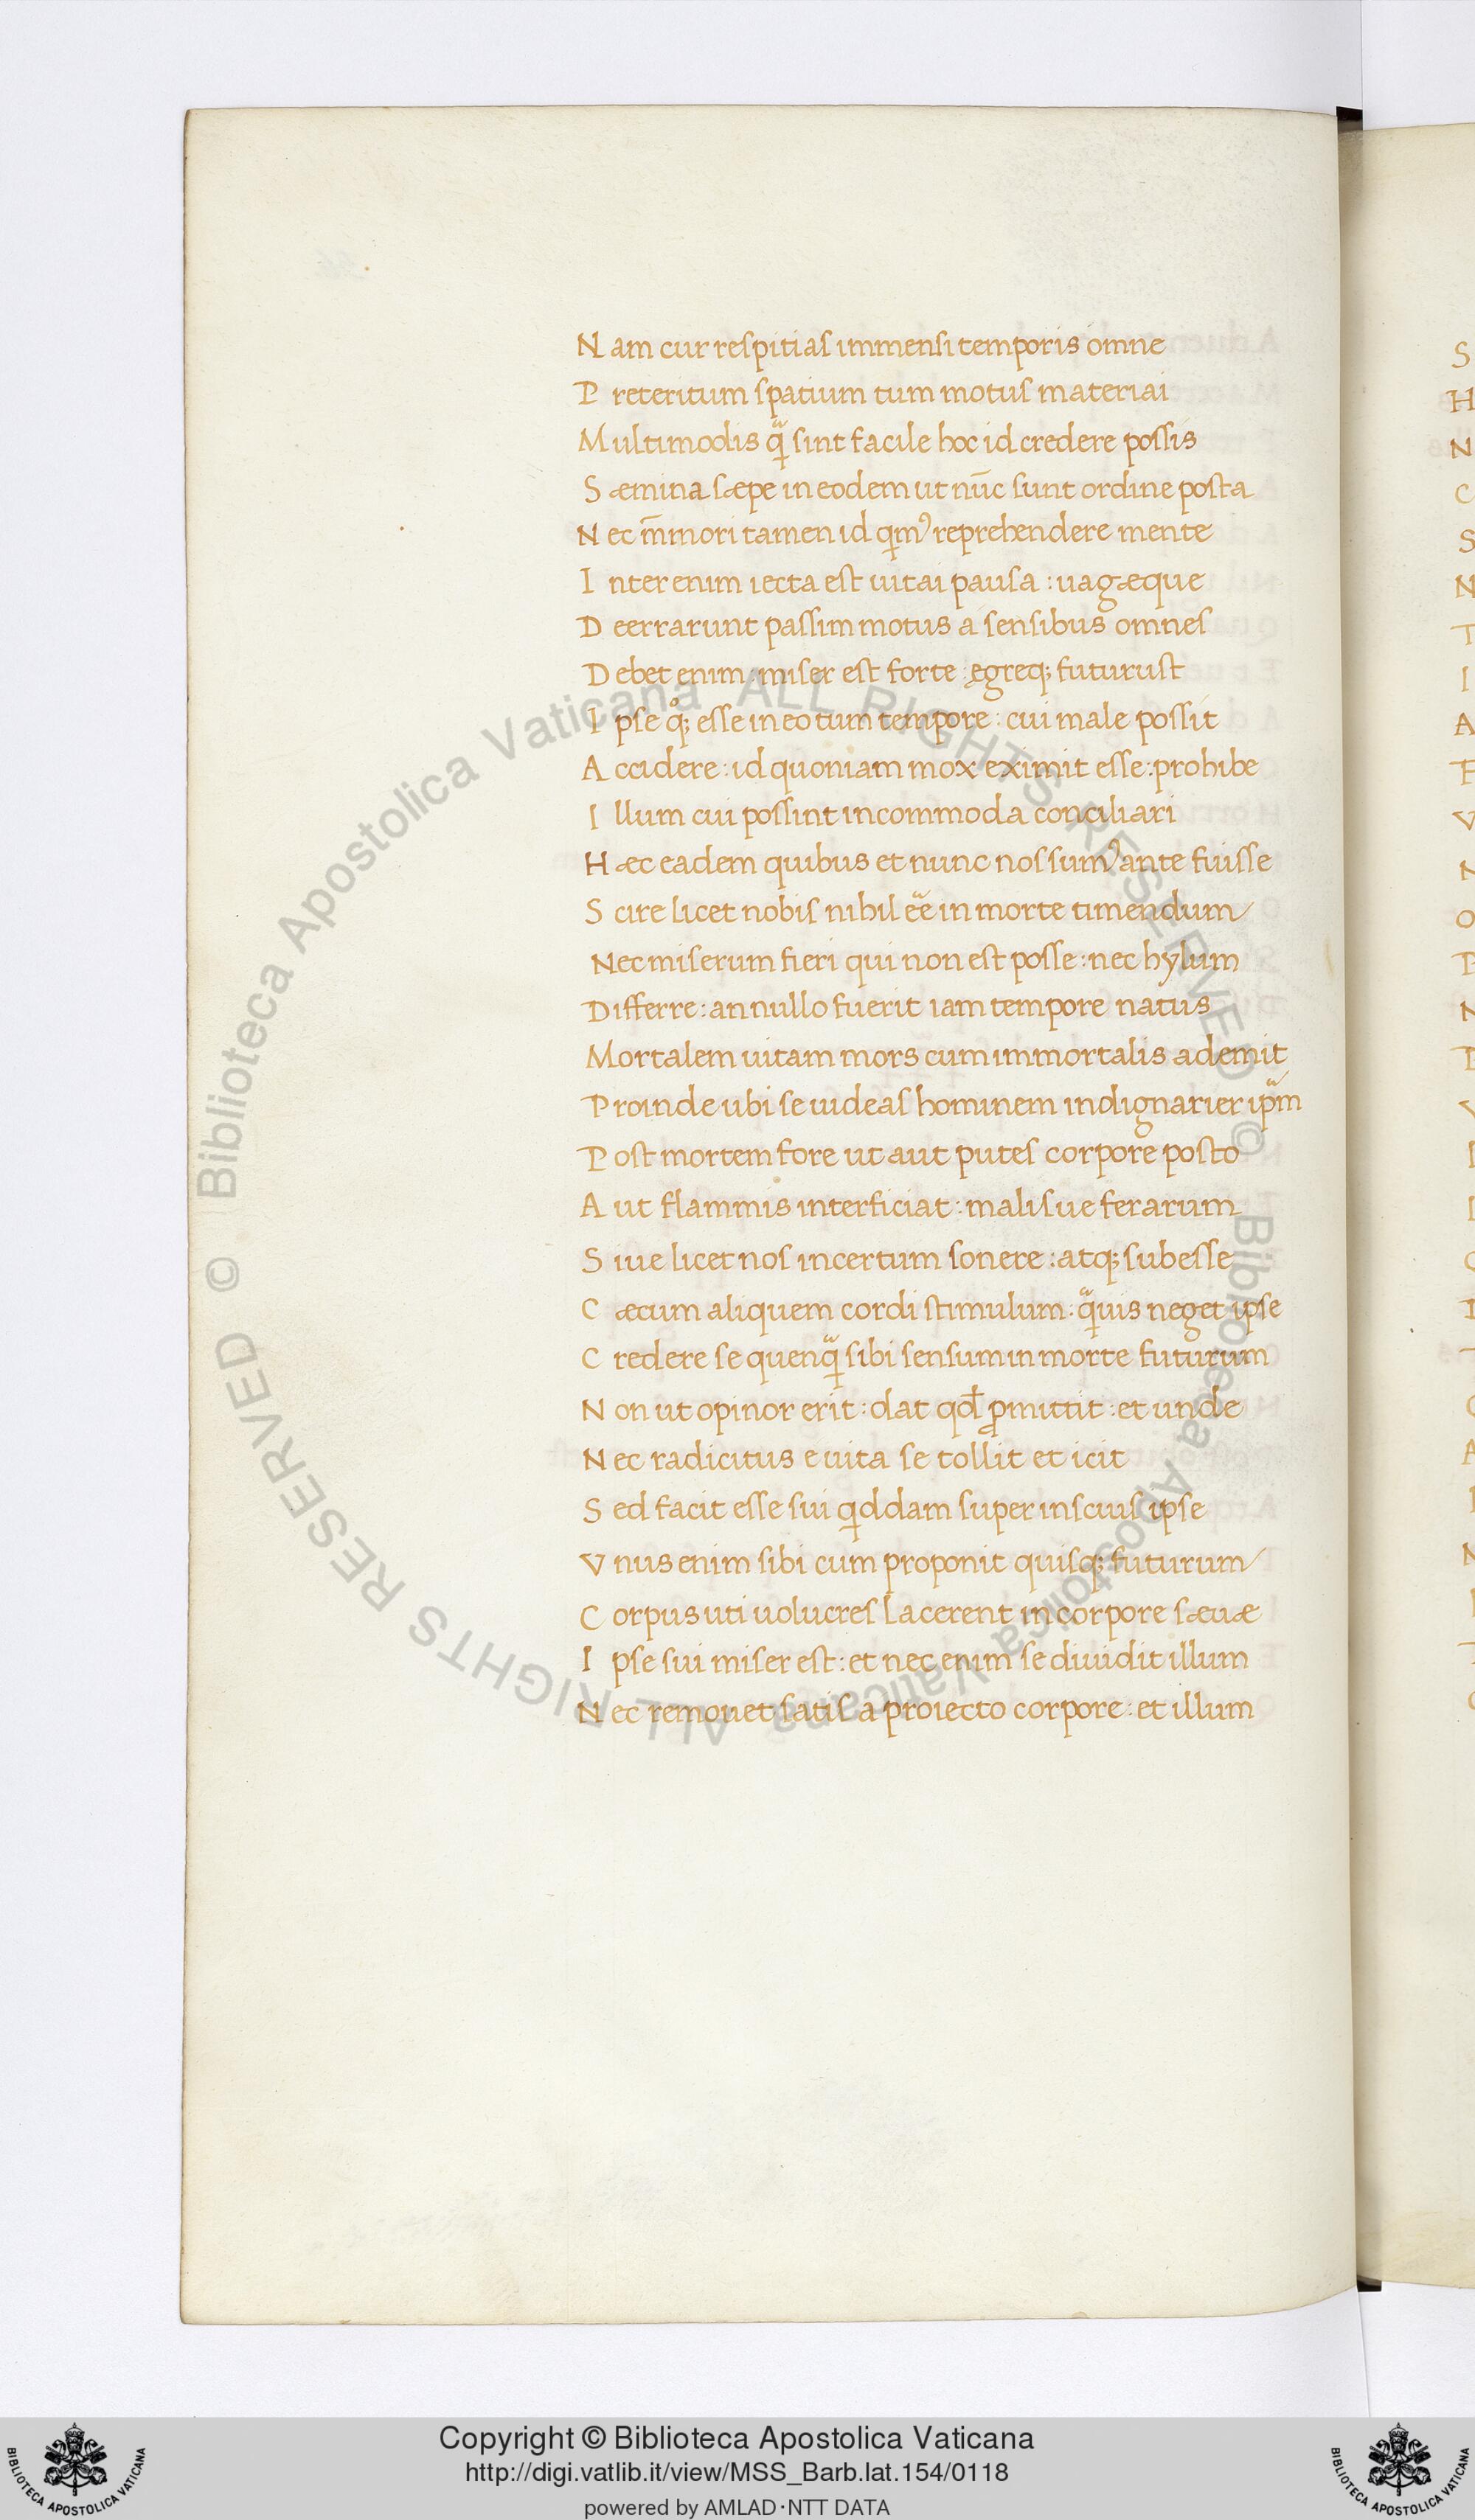 N am cur respitias immensi temporis omne
P reteritum spatium tum motus materiai
M ultimodis q̃ sint facile hoc id credere possis
S æmina sæpe in eodem ut nūc sunt ordine posta
N ec m̄mori tamen id qm᾽ reprehendere mente
I nter enim iecta est uitai pausa : uagæque
D eerrarunt passim motus a sensibus omnes
D ebet enim : miser est forte : ęgreq; futurust
I pse q°q; esse in eo tum tempore : cui male possit
A ccidere : id quoniam mox eximit esse : prohibe
I llum cui possint incommoda conciliari
H æc eadem quibus et nunc nos sum᾽ ante fuisse
S cire licet nobis nihil ēē in morte timendum
Nec miserum fieri qui non est posse : nec hylum
Differre : an nullo fuerit iam tempore natus
Mortalem uitam mors cum immortalis ademit
P roinde ubi se uideas hominem indignarier ip̃m
P ost mortem fore ut aut putes corpore posto
A ut flammis interficiat : malisue ferarum
S iue licet nos incertum sonere : atq; subesse
C æcum aliquem cordi stimulum : q̃uis neget ipse
C redere se quenq̃ sibi sensum in morte futurum
N on ut opinor erit : dat qđ ꝓmittit : et unde
N ec radicitus e uita se tollit et icit
S ed facit esse sui qddam super inscius ipse
V nus enim sibi cum proponit quisq; futurum
C orpus uti uolucres lacerent in corpore sæuæ
I pse sui miser est : et nec enim se diuidit illum
N ec remouet satis a proiecto corpore : et illum
© Biblioteca Apostolica Vaticana ALL RIGHTS RESERVED
© Biblioteca Apostolica Vaticana ALL RIGHTS RESERVED
Copyright © Biblioteca Apostolica Vaticana
http://digi.vatlib.it/view/MSS_Barb.lat.154/0118
powered by AMLAD·NTT DATA
BIBLIOTECA APOSTOLICA VATICANA
BIBLIOTECA APOSTOLICA VATICANA